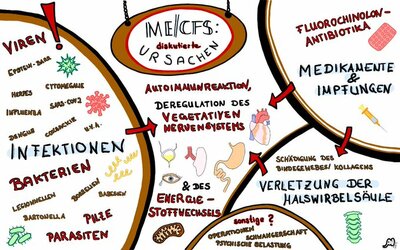 ME/CFS:
diskutierte
URSACHEN
VIREN
!
EPSTEIN-BARR
HERPES
CYTOMEGALIE
INFLUENZA
SARS-COV2
DENGUE
COXSACKIE
U.V.A.
INFEKTIONEN
BAKTERIEN
LEGIONELLEN
BORRELIEN
BABESIEN
BARTONELLA
PILZE
PARASITEN
AUTOIMMUNREAKTION,
DEREGULATION DES
VEGETATIVEN
NERVENSYSTEMS
& DES
ENERGIE-
STOFFWECHSELS
FLUOROCHINOLON-
ANTIBIOTIKA
MEDIKAMENTE
&
IMPFUNGEN
SCHÄDIGUNG DES
BINDEGEWEBES/KOLLAGENS
VERLETZUNG DER
HALSWIRBELSÄULE
sonstige ?
OPERATIONEN
SCHWANGERSCHAFT
PSYCHISCHE BELASTUNG